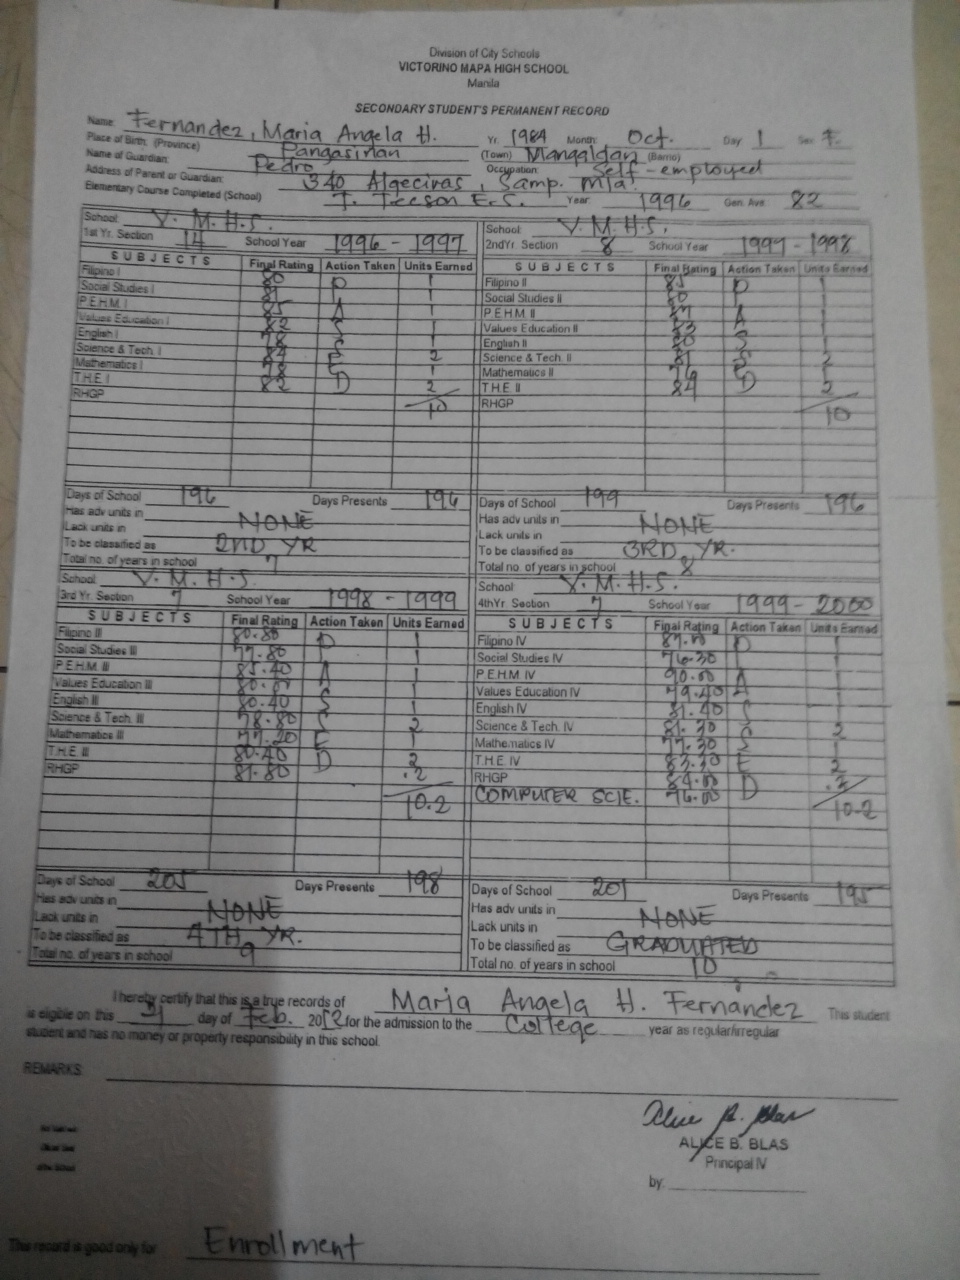 Division of City Schools
VICTORINO MAPA HIGH SCHOOL
Manila
SECONDARY STUDENT'S PERMANENT RECORD
Name: Fernandez, Maria Angela H. Yr. 1984 Month: Oct. Day 1 Sex F.
Place of Birth: (Province) Pangasinan (Town) Mangaldan (Barrio)
Name of Guardian: Pedro Occupation: Self-employed
Address of Parent or Guardian: 340 Algeciras, Samp. Mla.
Elementary Course Completed (School) T. Tecson E.S. Year 1996 Gen. Ave. 82
School: V. M. H. S.
1st Yr. Section 14 School Year 1996 - 1997
SUBJECTS Final Rating Action Taken Units Earned
Filipino I 80 P 1
Social Studies I 1
P.E.H.M. I 85 A 1
Values Education I 82 S 1
English I 78 S 1
Science & Tech. I 84 E 2
Mathematics I 78 1
T.H.E. I 82 D 2
RHGP 10
Days of School 196 Days Presents 196
Has adv units in
Lack units in NONE
To be classified as 2ND YR
Total no. of years in school 7
School: V. M. H. S.
2ndYr. Section 8 School Year 1997 - 1998
SUBJECTS Final Rating Action Taken Units Earned
Filipino II 85 P 1
Social Studies II 80 1
P.E.H.M. II 87 A 1
Values Education II 83 S 1
English II 80 S 1
Science & Tech. II 81 E 2
Mathematics II 76 1
T.H.E II 84 D 2
RHGP 10
Days of School 199 Days Presents 196
Has adv units in
Lack units in NONE
To be classified as 3RD YR.
Total no. of years in school 8
School: V. M. H. S.
3rd Yr. Section 7 School Year 1998 - 1999
SUBJECTS Final Rating Action Taken Units Earned
Filipino III 80.80 P 1
Social Studies III 77.80 1
P.E.H.M. III 85.40 A 1
Values Education III 1
English III 80.40 S 1
Science & Tech. III 78.80 S 2
Mathematics III 77.20 E 1
T.H.E. III 80.40 D 2
RHGP 81.80 .2
10.2
Days of School 205 Days Presents 198
Has adv units in
Lack units in NONE
To be classified as 4TH YR.
Total no. of years in school 9
School: V. M. H. S.
4thYr. Section 7 School Year 1999 - 2000
SUBJECTS Final Rating Action Taken Units Earned
Filipino IV P 1
Social Studies IV 76.30 1
P.E.H.M IV 90.00 A 1
Values Education IV 79.40 1
English IV 81.40 S 1
Science & Tech. IV 81.30 2
Mathematics IV 77.30 S 1
T.H.E. IV 83.30 E 2
RHGP 84.00
COMPUTER SCIE. 76.00 D
10.2
Days of School 201 Days Presents 195
Has adv units in
Lack units in NONE
To be classified as GRADUATED
Total no. of years in school 10
I hereby certify that this is a true records of Maria Angela H. Fernandez This student
is eligible on this day of Feb. 2012 for the admission to the College year as regular/irregular
student and has no money or property responsibility in this school.
REMARKS
ALICE B. BLAS
Principal IV
by:
This record is good only for Enrollment